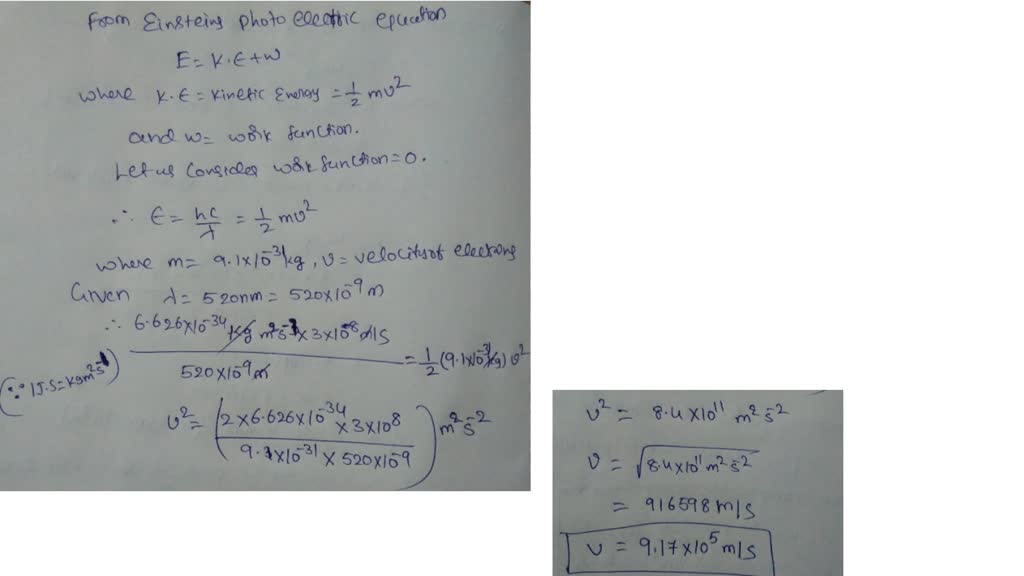 From Einsteins photo electric equation
E = K.E + W
where K.E = Kinetic Energy = 1/2 mv²
and w = work function.
Let us Consider work function = 0.
∴ E = hc/λ = 1/2 mv²
where m = 9.1×10⁻³¹ kg, v = velocity of electrons
Given λ = 520nm = 520×10⁻⁹ m
∴ 6.626×10⁻³⁴ kg m²s⁻¹ × 3×10⁻⁸ m/s / 520×10⁻⁹ m = 1/2 (9.1×10⁻³¹ kg) v²
(∵ 1J.S = kgm²s⁻¹)
v² = (2×6.626×10⁻³⁴ × 3×10⁸ / 9.1×10⁻³¹ × 520×10⁻⁹) m²s⁻²
v² = 8.4×10¹¹ m²s⁻²
v = √8.4×10¹¹ m²s⁻²
= 916598 m/s
v = 9.17×10⁵ m/s